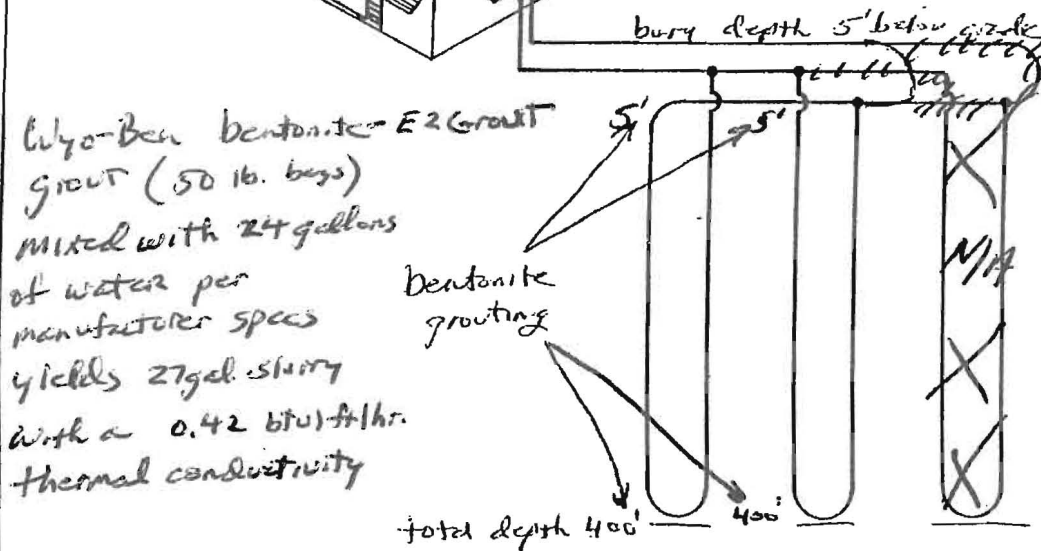 bury depth 5' below grade
5'
5'
Wyo-Ben bentonite-EZGrout
grout (50 lb. bags)
mixed with 24 gallons
of water per
manufacturer specs
yields 27gal. slurry
with a 0.42 btu/ft/hr.
thermal conductivity
bentonite
grouting
N/A
total depth 400'
400'